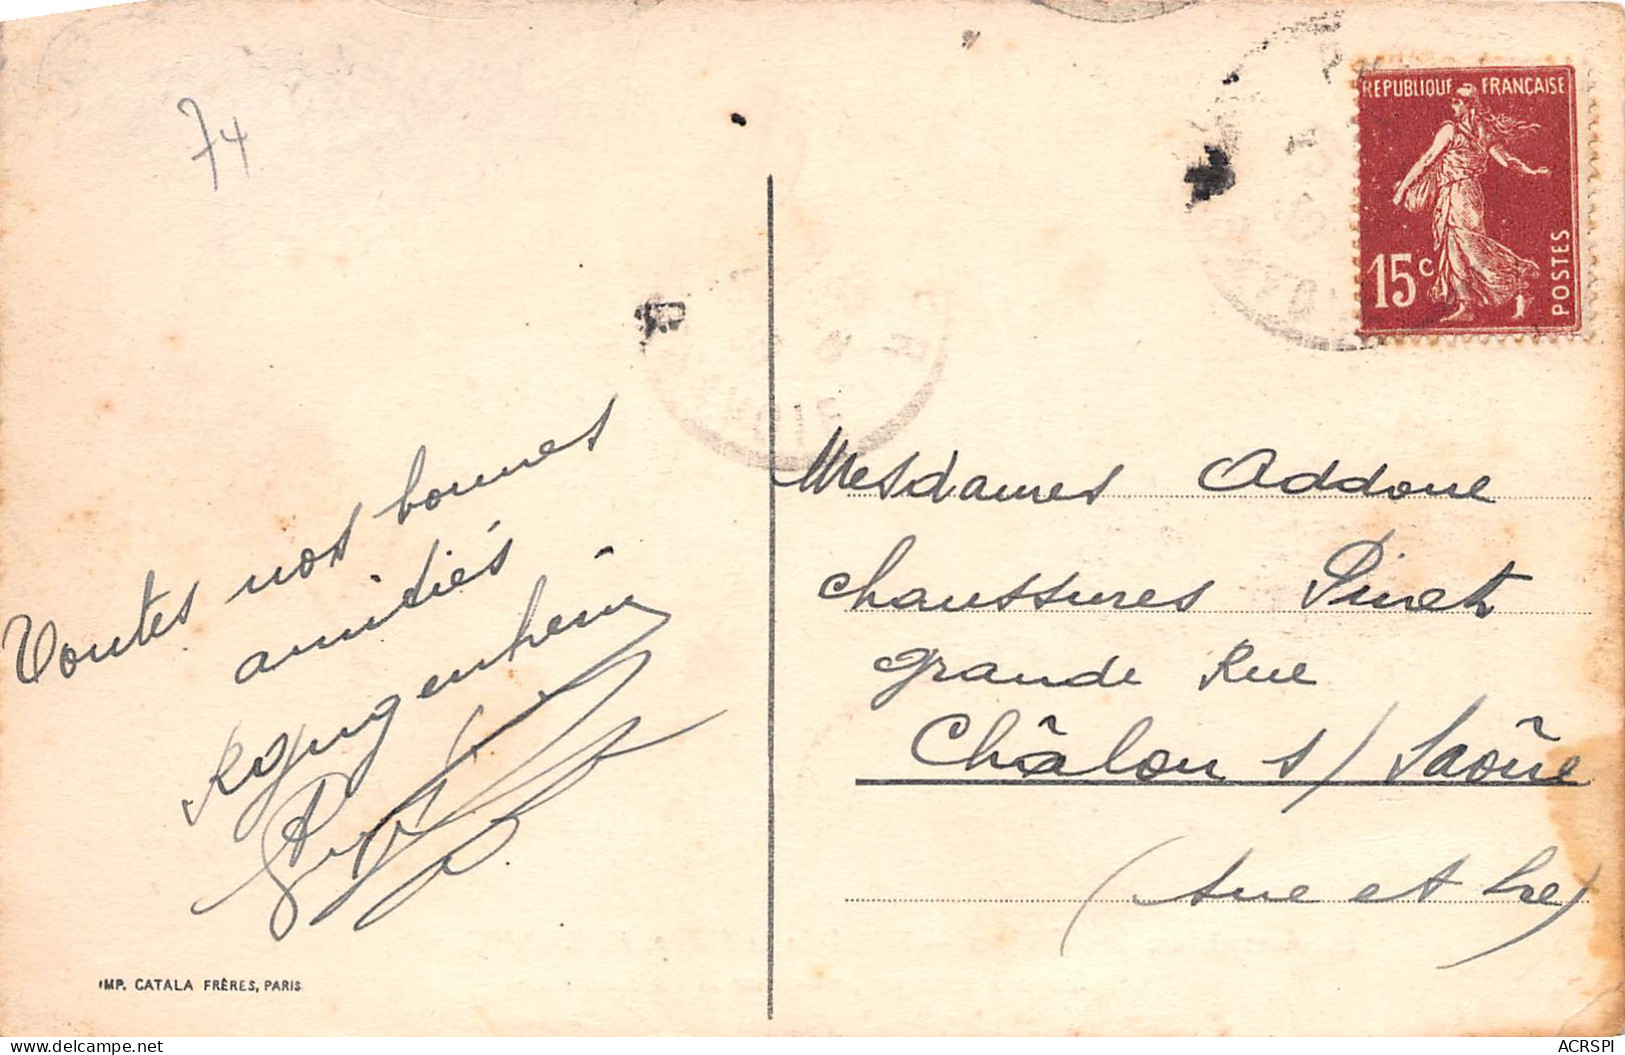 74
Toutes nos bonnes
amitiés
IMP. CATALA FRÈRES, PARIS
REPUBLIQUE FRANÇAISE
15c
POSTES
Mesdames Addone
Chaussures Pinet
grande Rue
Châlon s/ Saône
(Sne et Lre)
https://www.delcampe.net
ACRSPI